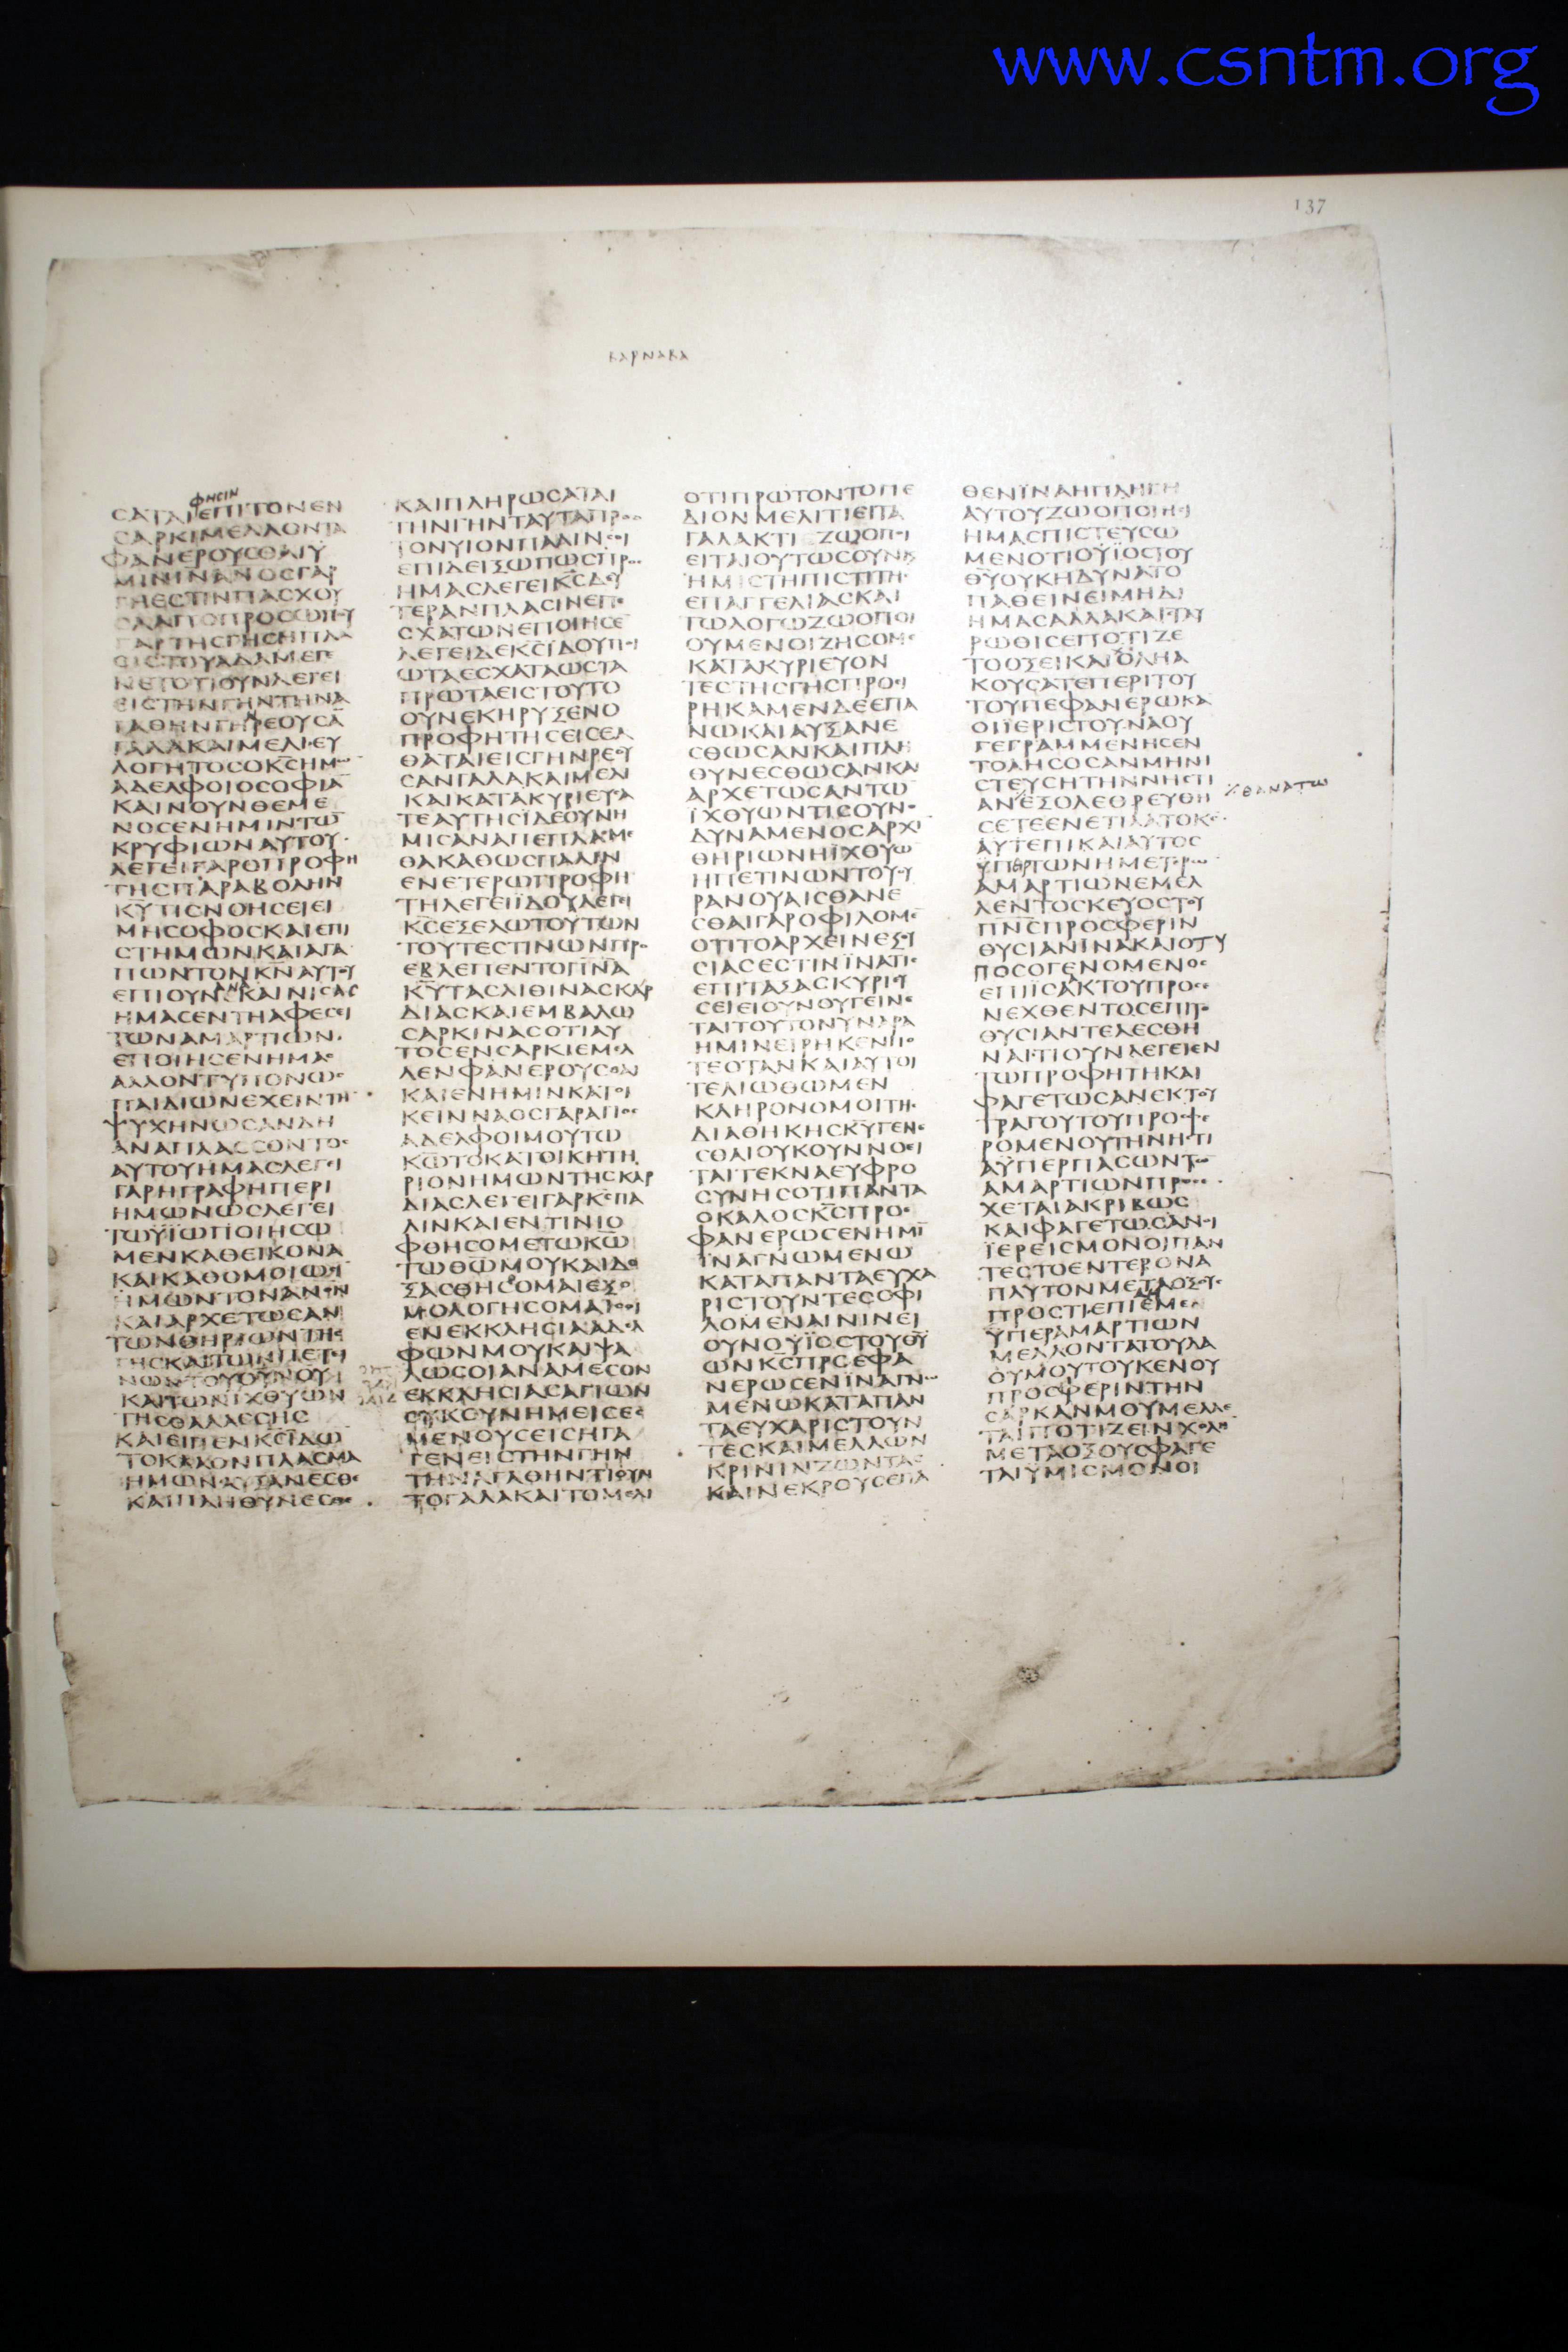 www.csntm.org
137
ΒΑΡΝΑΒΑ
ΦΗϹΙΝ
ϹΑΤΑΙΕΠΙΤΟΝΕΝ
ϹΑΡΚΙΜΕΛΛΟΝΤΑ
ΦΑΝΕΡΟΥϹΘΑΙΫ
ΜΙΝΙΝΑΝΟϹΓΑΡ
ΓΗΕϹΤΙΝΠΑϹΧΟΥ
ϹΑΑΠΟΠΡΟϹΩΠΟΥ
ΓΑΡΤΗϹΓΗϹΗΠΛΑ
ϹΙϹΤΟΥΑΔΑΜΕΓΕ
ΝΕΤΟΤΙΟΥΝΛΕΓΕΙ
ΕΙϹΤΗΝΓΗΝΤΗΝΑ
ΓΑΘΗΝΓΗΡΕΟΥϹΑ̅
ΓΑΛΑΚΑΙΜΕΛΙΕΥ
ΛΟΓΗΤΟϹΟΚ̅Ϲ̅ΗΜΩ
ΑΔΕΛΦΟΙΟϹΟΦΙΑ̅
ΚΑΙΝΟΥΝΘΕΜΕ
ΝΟϹΕΝΗΜΙΝΤΩ̅
ΚΡΥΦΙΩΝΑΥΤΟΥ
ΛΕΓΕΙΓΑΡΟΠΡΟΦΗ
ΤΗϹΠΑΡΑΒΟΛΗΝ
Κ̅Υ̅ΤΙϹΝΟΗϹΕΙΕΙ
ΜΗϹΟΦΟϹΚΑΙΕΠΙ
ϹΤΗΜΩΝΚΑΙΑΓΑ
ΠΩΝΤΟΝΚ̅Ν̅ΑΥΤΟΥ
ΑΝΑ
ΕΠΙΟΥΝΚΑΙΝΙϹΑϹ
ΗΜΑϹΕΝΤΗΑΦΕϹΕΙ
ΤΩΝΑΜΑΡΤΙΩΝ
ΕΠΟΙΗϹΕΝΗΜΑϹ
ΑΛΛΟΝΤΥΠΟΝΩϹ
ΠΑΙΔΙΩΝΕΧΕΙΝΤΗ
ΨΥΧΗΝΩϹΑΝΔΗ
ΑΝΑΠΛΑϹϹΟΝΤΟϹ
ΑΥΤΟΥΗΜΑϹΛΕΓΕΙ
ΓΑΡΗΓΡΑΦΗΠΕΡΙ
ΗΜΩΝΩϹΛΕΓΕΙ
ΤΩΫΙΩΠΟΙΗϹΩ
ΜΕΝΚΑΘΕΙΚΟΝΑ
ΚΑΙΚΑΘΟΜΟΙΩϹΙ
ΗΜΩΝΤΟΝΑΝΟΝ
ΚΑΙΑΡΧΕΤΩϹΑΝ
ΤΩΝΘΗΡΙΩΝΤΗϹ
ΓΗϹΚΑΙΤΩΝΠΕΤΗ
ΝΩΝΤΟΥΟΥΝΟΥ
ΚΑΙΤΩΝΙΧΘΥΩΝ
ΤΗϹΘΑΛΑϹϹΗϹ
ΚΑΙΕΙΠΕΝΚ̅Ϲ̅ΙΔΩ̅
ΤΟΚΑΛΟΝΠΛΑϹΜΑ
ΗΜΩΝΑΥΞΑΝΕϹΘΕ
ΚΑΙΠΛΗΘΥΝΕϹΘΕ
ΚΑΙΠΛΗΡΩϹΑΤΑΙ
ΤΗΝΓΗΝΤΑΥΤΑΠΡΟϹ
ΤΟΝΥΙΟΝΠΑΛΙΝϹΟΙ
ΕΠΙΔΕΙΞΩΠΩϹΠΡΟϹ
ΗΜΑϹΛΕΓΕΙΚ̅Ϲ̅ΔΕΥ
ΤΕΡΑΝΠΛΑϹΙΝΕΠΕ
ϹΧΑΤΩΝΕΠΟΙΗϹΕ̅
ΛΕΓΕΙΔΕΚ̅Ϲ̅ΙΔΟΥΠΟΙ
ΩΤΑΕϹΧΑΤΑΩϹΤΑ
ΠΡΩΤΑΕΙϹΤΟΥΤΟ
ΟΥΝΕΚΗΡΥΞΕΝΟ
ΠΡΟΦΗΤΗϹΕΙϹΕΛ
ΘΑΤΑΙΕΙϹΓΗΝΡΕΟΥ
ϹΑΝΓΑΛΑΚΑΙΜΕΛΙ
ΚΑΙΚΑΤΑΚΥΡΙΕΥϹΑ
ΤΕΑΥΤΗϹΙΔΕΟΥΝΗ
ΜΙϹΑΝΑΠΕΠΛΑϹΜΕ
ΘΑΚΑΘΩϹΠΑΛΙΝ
ΕΝΕΤΕΡΩΠΡΟΦΗ
ΤΗΛΕΓΕΙΙΔΟΥΛΕΓΕΙ
Κ̅Ϲ̅ΕΞΕΛΩΤΟΥΤΩΝ
ΤΟΥΤΕϹΤΙΝΩΝΠΡΟ
ΕΒΛΕΠΕΝΤΟΠ̅Ν̅Α̅
Κ̅Υ̅ΤΑϹΛΙΘΙΝΑϹΚΑΡ
ΔΙΑϹΚΑΙΕΜΒΑΛΩ
ϹΑΡΚΙΝΑϹΟΤΙΑΥ
ΤΟϹΕΝϹΑΡΚΙΕΜΕΛ
ΛΕΝΦΑΝΕΡΟΥϹΘΑΙ
ΚΑΙΕΝΗΜΙΝΚΑΤΟΙ
ΚΕΙΝΝΑΟϹΓΑΡΑΓΙΟϹ
ΑΔΕΛΦΟΙΜΟΥΤΩ
Κ̅Ω̅ΤΟΚΑΤΟΙΚΗΤΗ
ΡΙΟΝΗΜΩΝΤΗϹΚΑΡ
ΔΙΑϹΛΕΓΕΙΓΑΡΚ̅Ϲ̅ΠΑ
ΛΙΝΚΑΙΕΝΤΙΝΙΟ
ΦΘΗϹΟΜΕΤΩΚ̅Ω̅
ΤΩΘ̅Ω̅ΜΟΥΚΑΙΔΟ
ΞΑϹΘΗϹΟΜΑΙΕΞΟ
ΜΟΛΟΓΗϹΟΜΑΙϹΟΙ
ΕΝΕΚΚΛΗϹΙΑΑΔΕΛ
ΦΩΝΜΟΥΚΑΙΨΑ
ΛΩϹΟΙΑΝΑΜΕϹΟΝ
ΕΚΚΛΗϹΙΑϹΑΓΙΩΝ
ΟΥΚΟΥΝΗΜΕΙϹΕϹ
ΜΕΝΟΥϹΕΙϹΗΓΑ
ΓΕΝΕΙϹΤΗΝΓΗΝ
ΤΗΝΑΓΑΘΗΝΤΙΟΥΝ
ΤΟΓΑΛΑΚΑΙΤΟΜΕΛΙ
ΟΤΙΠΡΩΤΟΝΤΟΠΕ
ΔΙΟΝΜΕΛΙΤΙΕΠΑ
ΓΑΛΑΚΤΙΖΩΟΠΟΙ
ΕΙΤΑΙΟΥΤΩϹΟΥΝΚ
ΗΜΙϹΤΗΠΙϹΤΙΤΗϹ
ΕΠΑΓΓΕΛΙΑϹΚΑΙ
ΤΩΛΟΓΩΖΩΟΠΟΙ
ΟΥΜΕΝΟΙΖΗϹΟΜΕ
ΚΑΤΑΚΥΡΙΕΥΟΝ
ΤΕϹΤΗϹΓΗϹΠΡΟΕΙ
ΡΗΚΑΜΕΝΔΕΕΠΑ
ΝΩΚΑΙΑΥΞΑΝΕ
ϹΘΩϹΑΝΚΑΙΠΛΗ
ΘΥΝΕϹΘΩϹΑΝΚΑΙ
ΑΡΧΕΤΩϹΑΝΤΩ̅
ΙΧΘΥΩΝΤΙϹΟΥΝΟ
ΔΥΝΑΜΕΝΟϹΑΡΧΙ
ΘΗΡΙΩΝΗΪΧΘΥΩ̅
ΗΠΕΤΙΝΩΝΤΟΥΟΥ
ΡΑΝΟΥΑΙϹΘΑΝΕ
ϹΘΑΙΓΑΡΟΦΙΛΟΜΕ
ΟΤΙΤΟΑΡΧΕΙΝΕΞΟΥ
ϹΙΑϹΕϹΤΙΝΪΝΑΤΙϹ
ΕΠΙΤΑΞΑϹΚΥΡΙΕΥ
ϹΕΙΕΙΟΥΝΟΥΓΕΙΝΕ
ΤΑΙΤΟΥΤΟΝΥΝΑΡΑ
ΗΜΙΝΕΙΡΗΚΕΝΠΟ
ΤΕΟΤΑΝΚΑΙΑΥΤΟΙ
ΤΕΛΙΩΘΩΜΕΝ
ΚΛΗΡΟΝΟΜΟΙΤΗϹ
ΔΙΑΘΗΚΗϹΚ̅Υ̅ΓΕΝΕ
ϹΘΑΙΟΥΚΟΥΝΝΟΕΙ
ΤΑΙΤΕΚΝΑΕΥΦΡΟ
ϹΥΝΗϹΟΤΙΠΑΝΤΑ
ΟΚΑΛΟϹΚ̅Ϲ̅ΠΡΟΕ
ΦΑΝΕΡΩϹΕΝΗΜΙ̅
ΙΝΑΓΝΩΜΕΝΩ
ΚΑΤΑΠΑΝΤΑΕΥΧΑ
ΡΙϹΤΟΥΝΤΕϹΟΦΙ
ΛΟΜΕΝΑΙΝΙΝΕΙ
ΟΥΝΟΫΪΟϹΤΟΥΘ̅Υ̅
ΩΝΚ̅Ϲ̅ΠΡΟΕΦΑ
ΝΕΡΩϹΕΝΪΝΑΓΝΩ
ΜΕΝΩΚΑΤΑΠΑΝ
ΤΑΕΥΧΑΡΙϹΤΟΥΝ
ΤΕϹΚΑΙΜΕΛΛΩΝ
ΚΡΙΝΙΝΖΩΝΤΑϹ
ΚΑΙΝΕΚΡΟΥϹΕΠΑ
ΘΕΝΪΝΑΗΠΛΗΓΗ
ΑΥΤΟΥΖΩΟΠΟΙΗϹΗ
ΗΜΑϹΠΙϹΤΕΥϹΩ
ΜΕΝΟΤΙΟΫΪΟϹΤΟΥ
Θ̅Υ̅ΟΥΚΗΔΥΝΑΤΟ
ΠΑΘΕΙΝΕΙΜΗΔΙ
ΗΜΑϹΑΛΛΑΚΑΙϹΤΑΥ
ΡΩΘΙϹΕΠΟΤΙΖΕ
ΤΟΟΞΕΙΚΑΙΧΟΛΗΑ
ΚΟΥϹΑΤΕΠΕΡΙΤΟΥ
ΤΟΥΠΕΦΑΝΕΡΩΚΑ̅
ΟΙΪΕΡΙϹΤΟΥΝΑΟΥ
ΓΕΓΡΑΜΜΕΝΗϹΕΝ
ΤΟΛΗϹΟϹΑΝΜΗΝΙ
ϹΤΕΥϹΗΤΗΝΝΗϹΤΙ
ΑΝΕΞΟΛΕΘΡΕΥΘΗ
ΘΑΝΑΤΩ
ϹΕΤΕΕΝΕΤΙΛΑΤΟΚ̅Ϲ̅
ΑΥΤΕΠΙΚΑΙΑΥΤΟϹ
ΫΠΕΡΤΩΝΗΜΕΤΕΡΩΝ
ΑΜΑΡΤΙΩΝΕΜΕΛ
ΛΕΝΤΟϹΚΕΥΟϹΤΟΥ
Π̅Ν̅Ϲ̅ΠΡΟϹΦΕΡΙΝ
ΘΥϹΙΑΝΙΝΑΚΑΙΟΤΥ
ΠΟϹΟΓΕΝΟΜΕΝΟϹ
ΕΠΙΪϹΑΚΤΟΥΠΡΟϹΕ
ΝΕΧΘΕΝΤΟϹΕΠΙΤΟ
ΘΥϹΙΑΝΤΕΛΕϹΘΗ
ΝΑΙΤΙΟΥΝΛΕΓΕΙΕΝ
ΤΩΠΡΟΦΗΤΗΚΑΙ
ΦΑΓΕΤΩϹΑΝΕΚΤΟΥ
ΤΡΑΓΟΥΤΟΥΠΡΟϹΦΕ
ΡΟΜΕΝΟΥΤΗΝΗϹΤΙ
ΑΫΠΕΡΠΑϹΩΝΤΩ
ΑΜΑΡΤΙΩΝΠΡΟϹΕ
ΧΕΤΑΙΑΚΡΙΒΩϹ
ΚΑΙΦΑΓΕΤΩϹΑΝΟΙ
ΪΕΡΕΙϹΜΟΝΟΙΠΑΝ
ΤΕϹΤΟΕΝΤΕΡΟΝΑ
ΠΛΥΤΟΝΜΕΤΑΟΞΟΥϹ
ΠΡΟϹΤΙΕΠΙΕΜΕ
ΫΠΕΡΑΜΑΡΤΙΩΝ
ΜΕΛΛΟΝΤΑΤΟΥΛΑ
ΟΥΜΟΥΤΟΥΚΕΝΟΥ
ΠΡΟϹΦΕΡΙΝΤΗΝ
ϹΑΡΚΑΝΜΟΥΜΕΛΛΕ
ΤΑΙΠΟΤΙΖΕΙΝΧΟΛΗ
ΜΕΤΑΟΞΟΥϹΦΑΓΕ
ΤΑΙΫΜΙϹΜΟΝΟΙ